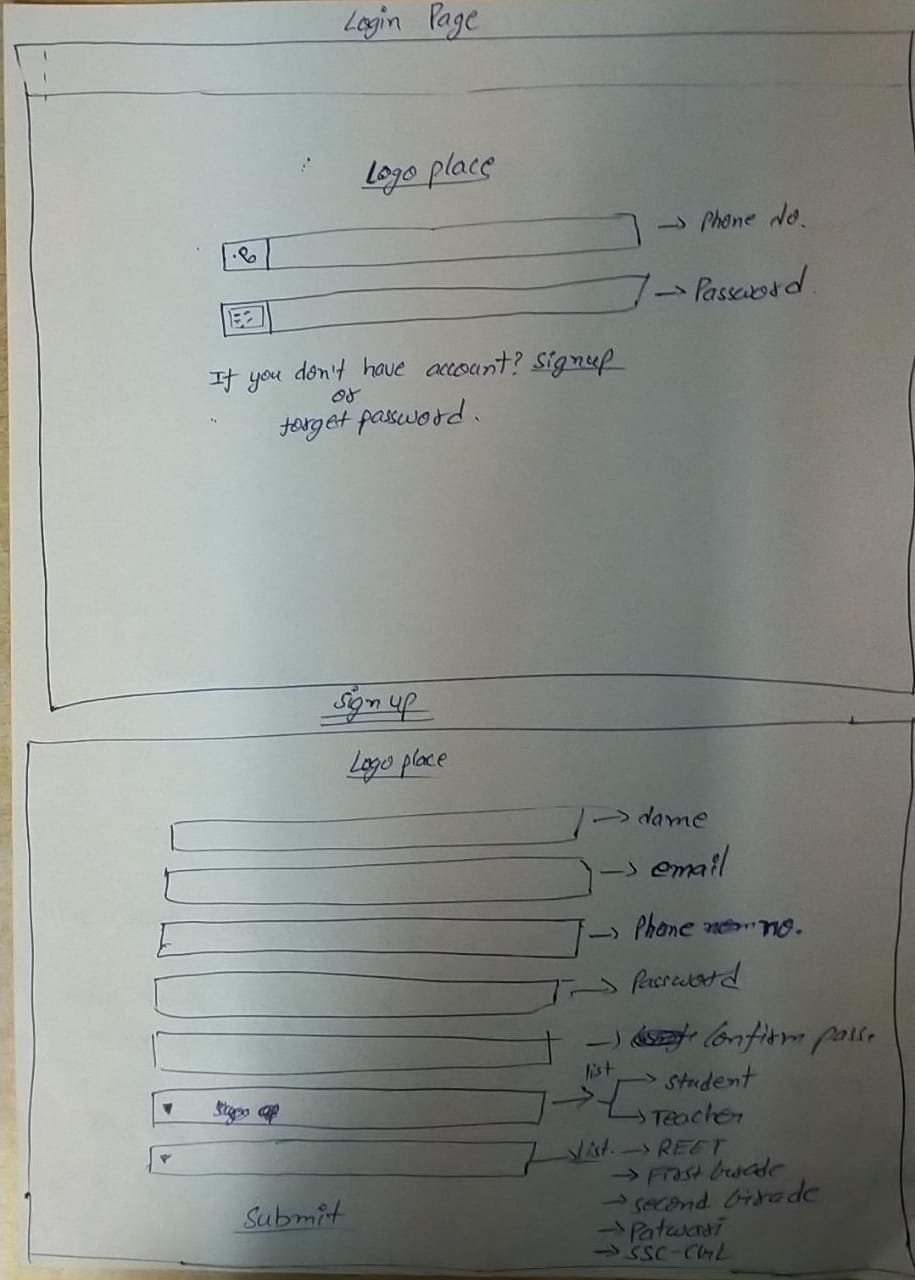 Login Page
Logo place
→ Phone No.
→ Password.
If you don't have account? Signup
or
forget password.
Sign up
Logo place
→ Name
→ email
→ Phone no.
→ Password
→ Confirm pass.
list
→ Student
→ Teacher
Sign up
list. → REET
→ First Grade
→ Second Grade
→ Patwari
→ SSC-CGL
Submit